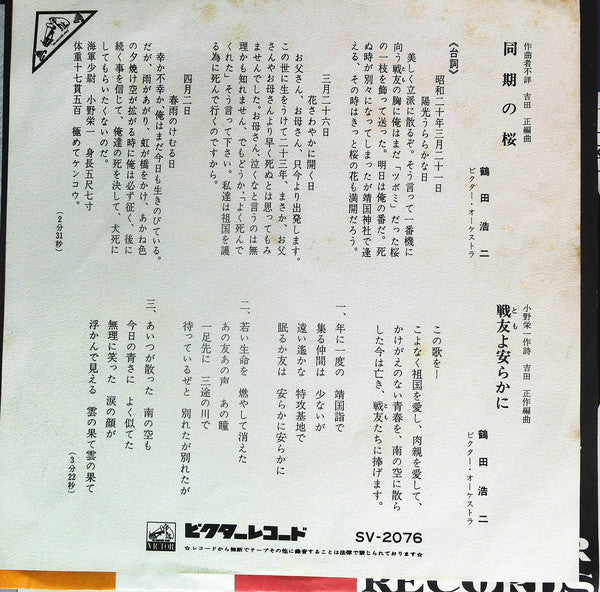 作曲者不詳 吉田 正編曲
同期の桜
鶴田浩二
ビクター・オーケストラ
《台詞》
昭和二十年三月二十一日
陽光うららかな日
美しく立派に散るぞ。そう言って一番機に
向う戦友の胸に俺はまだ"ツボミ"だった桜
とも
の一枝を飾って送った。明日は俺の番だ。死
ぬ時が別々になってしまったが靖国神社で逢
える、その時はきっと桜の花も満開だろう。
三月二十六日
花さわやかに開く日
お父さん、お母さん、只今より出発します。
この世に生をうけて二十三年、まさか、お父
さんやお母さんより早く死ぬとは思ってもみ
ませんでした。お母さん、泣くなと言うのは無
理かも知れません、でもどうか、「よく死んで
くれた」そう言って下さい。私達は祖国を護
る為に死んで行くのですから。
四月二日
春雨のけむる日
幸か不幸か、俺はまだ今日も生きのびている。
だが、雨があがり、虹が橋をかけ、あかね色
の夕焼け空が拡がる時に俺は必ず征く、後に
続く事を信じて、俺達の死を決して、犬死に
してもらいたくないのだ。
海軍少尉 小野栄一 身長五尺七寸
体重十七貫五百 極めてケンコウ。
(2分31秒)
小野栄一作詩 吉田 正作編曲
戦友よ安らかに
とも
鶴田浩二
ビクター・オーケストラ
この歌を―
こよなく祖国を愛し、肉親を愛して、
かけがえのない青春を、南の空に散ら
した今は亡き、戦友たちに捧げます。
とも
一、年に一度の 靖国詣で
集る仲間は 少ないが
遠い遙かな 特攻基地で
眠るか友は 安らかに安らかに
二、若い生命を 燃やして消えた
あの友あの声 あの瞳
一足先に 三途の川で
待っているぜと 別れたが別れたが
三、あいつが散った 南の空も
今日の青さに よく似てた
無理に笑った 涙の顔が
浮かんで見える 雲の果て雲の果て
(3分22秒)
VICTOR
ビクターレコード
SV-2076
☆レコードから無断でテープその他に録音することは法律で禁じられております☆
RECORDS